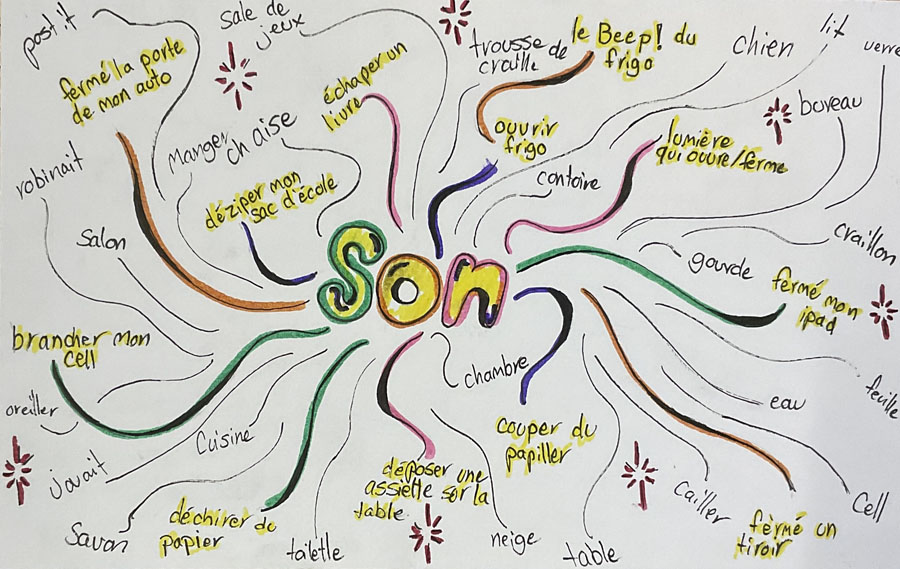 post it
sale de
jeux
trousse de
craille
le Beep! du
frigo
chien
lit
verre
fermé la porte
de mon auto
échaper un
livre
bureau
robinait
manger
chaise
ouvrir
frigo
lumière
qui ouvre/ferme
contoire
déziper mon
sac d'école
salon
Son
craillon
gourde
fermé mon
ipad
brancher mon
cell
chambre
oreiller
eau
feuille
Cuisine
couper du
papiller
javait
déposer une
assiette sur la
table
cailler
Cell
Savon
déchirer du
papier
tailetle
neige
table
fèrmé un
tiroir